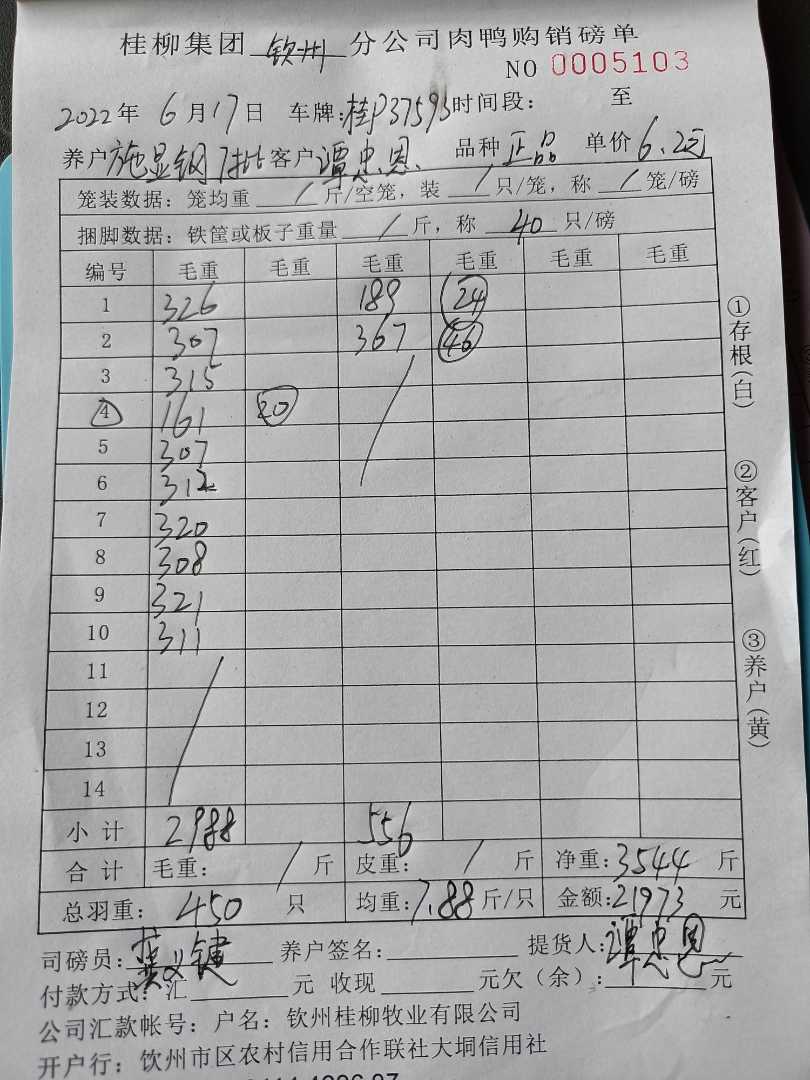 桂柳集团 钦州 分公司肉鸭购销磅单
NO 0005103
2022年 6月17日 车牌:桂P37593 时间段: 至
养户 施显钢7批 客户 谭忠恩 品种 正品 单价 6.2元
笼装数据: 笼均重 / 斤/空笼, 装 / 只/笼, 称 / 笼/磅
捆脚数据: 铁筐或板子重量 / 斤, 称 40 只/磅
编号 毛重 毛重 毛重 毛重 毛重 毛重
1 326 189 24
2 307 367 46
3 315
4 161 20
5 307
6 312
7 320
8 308
9 321
10 311
11
12
13
14
小计 2988 556
合计 毛重: / 斤 皮重: / 斤 净重:3544 斤
总羽重: 450 只 均重:7.88斤/只 金额:21973 元
司磅员: 键 养户签名: 提货人:谭忠恩
付款方式: 汇 元 收现 元欠(余): 元
公司汇款帐号: 户名: 钦州桂柳牧业有限公司
开户行: 钦州市区农村信用合作联社大垌信用社
①存根(白)
②客户(红)
③养户(黄)